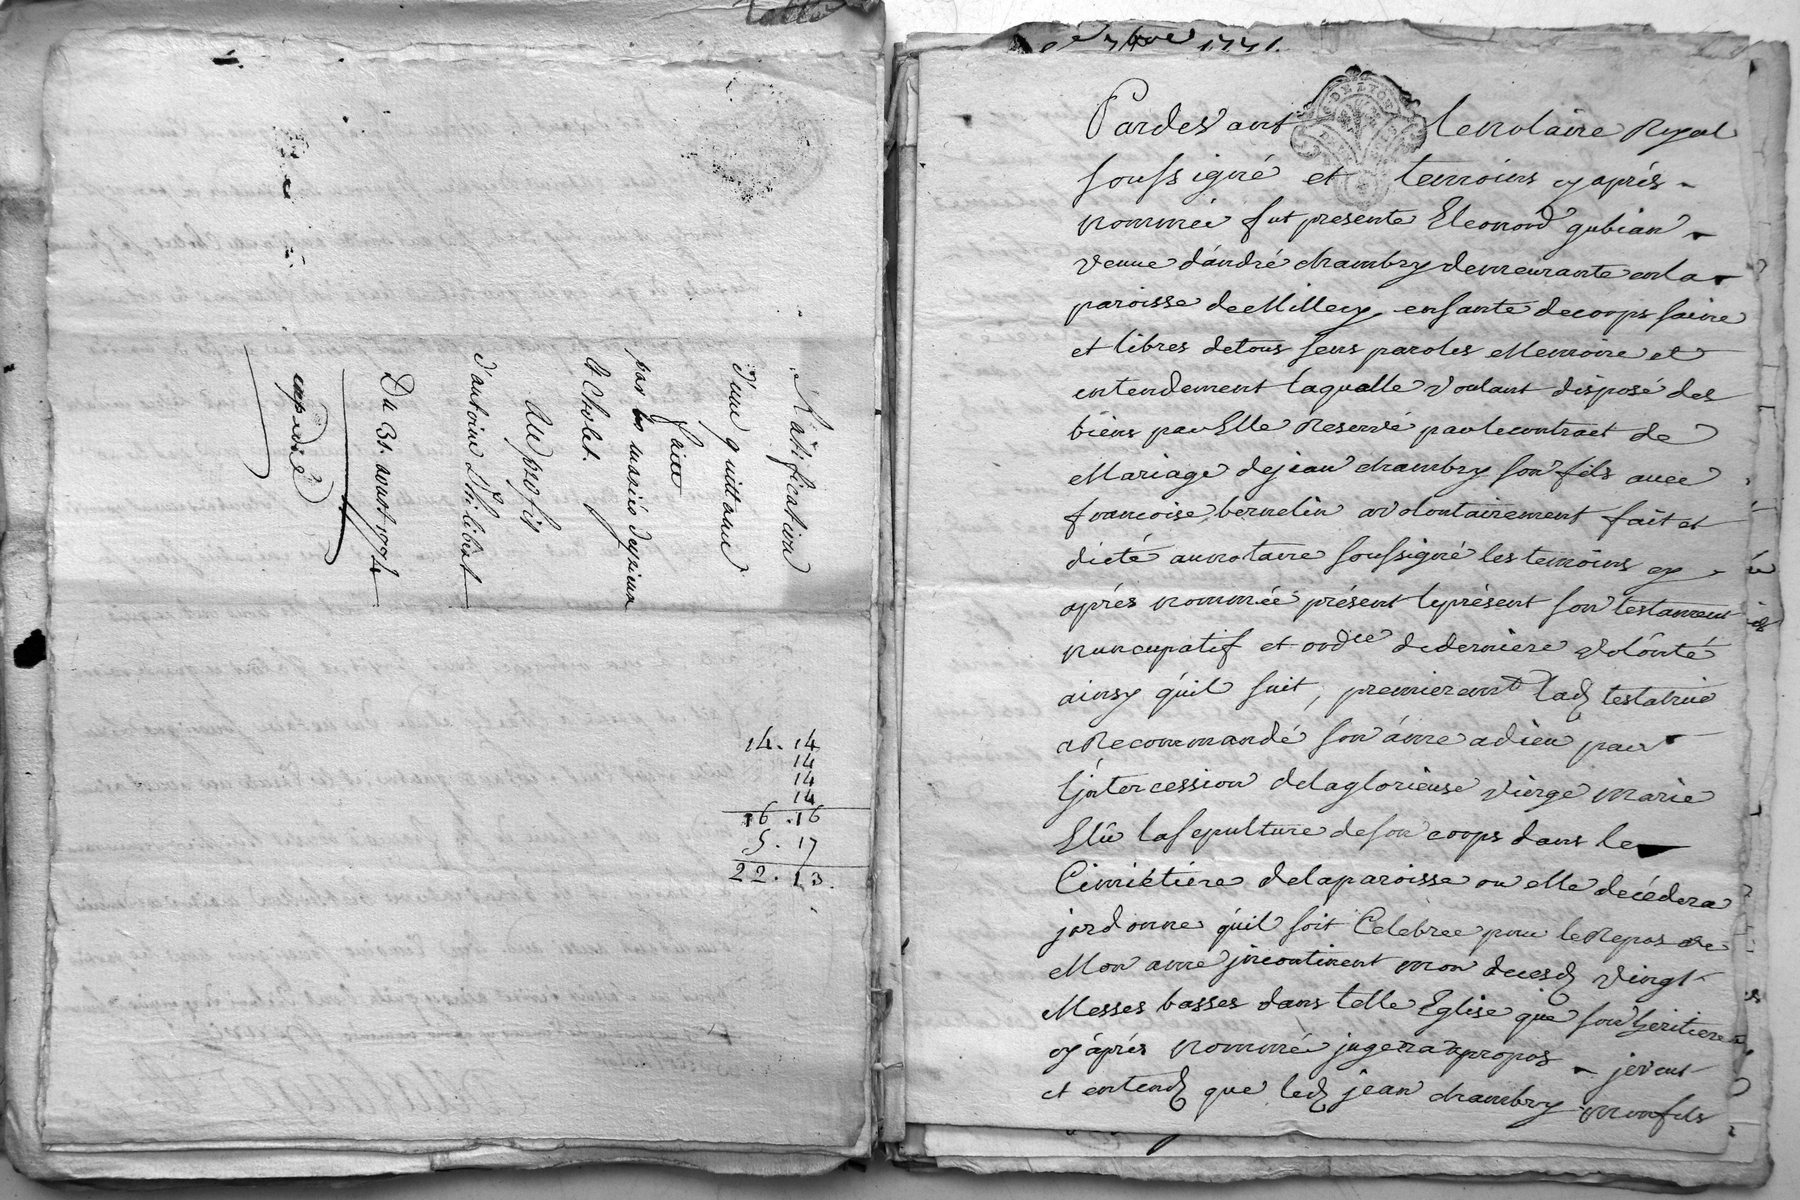 Ratification
d'une quittance
faitte
par les mariés deyrieux
& Cholet.
au profit
d'antoine Philibert
Du 31. aoust 1774
expedié
14. 14
14
14
14
16. 16
5. 17
22. 13.
1771.
Pardevant le notaire Royal
soussigné et temoins cy aprés
nommée fut presente Eleonord gubian
veuve d'andré chambry demeurante en la
paroisse de Millery, enfante de corps saine
et libres de tous sens paroles Memoire et
entendement laqualle voulant disposé des
biens par Elle Reservé par le contract de
Mariage de jean chambry son fils avec
francoise bernelin a volontairement fait et
dicté au notaire soussigné les temoins cy
aprés nommée présent le présent son testament
nuncupatif et ordce de derniere volônté
ainsy quil suit, premieremt ladt testatrice
a Recommandé son âme a dieu par
L'jntercession de la glorieuse vierge marie
Elû la sepulture de son corps dans le
Cimiétiere de la paroisse ou elle décédera
jordonne quil soit Celebree pour le Repos de
Mon ame jncontinent mon decesd vingt
Messes basses dans telle Eglise que son heritiere
cy aprés nommé jugera apropos je veut
et entend que led jean chambry mon fils